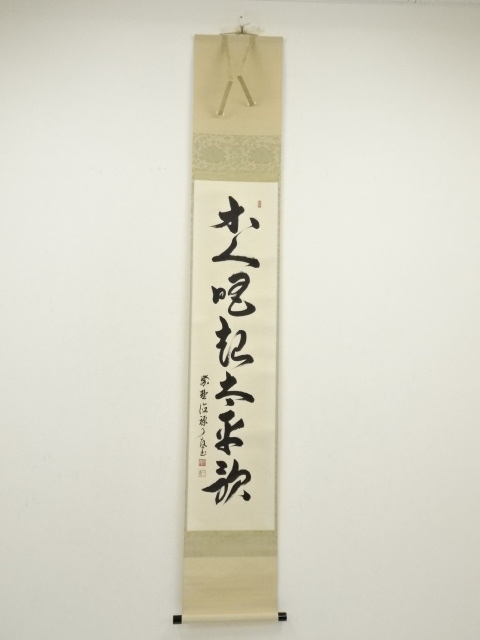 木人唱起太平歌
紫野